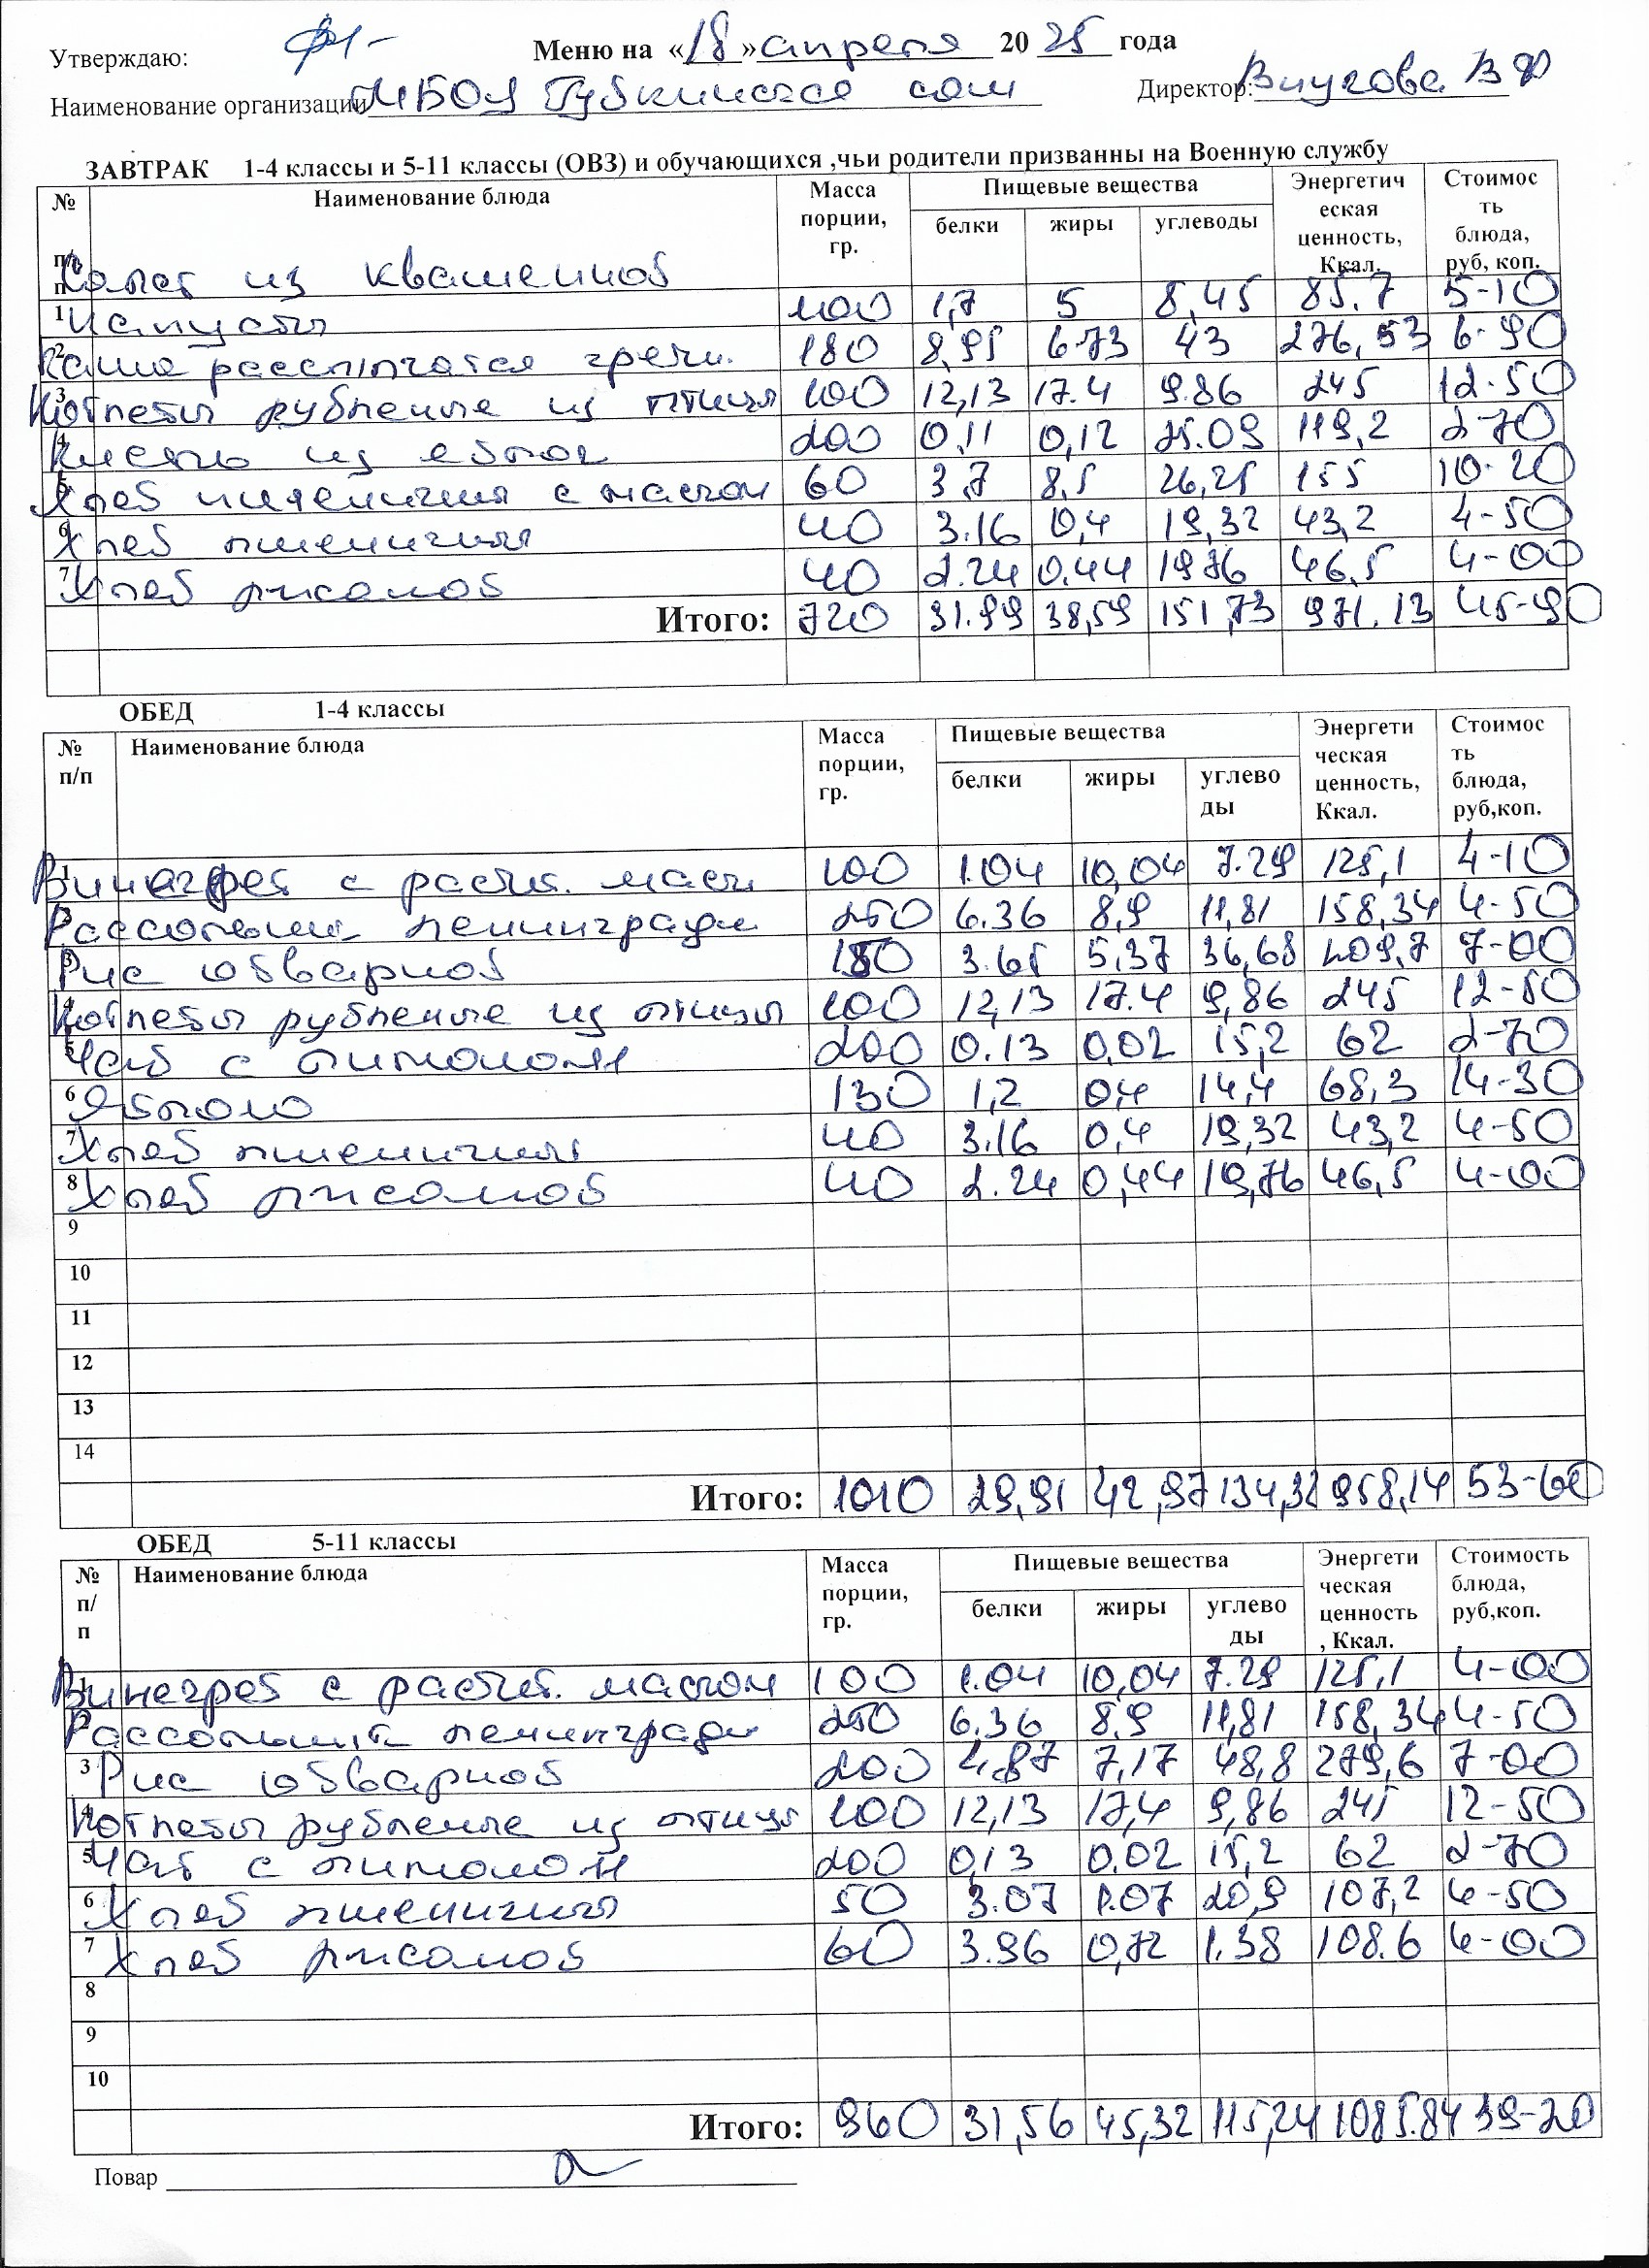 Утверждаю: Меню на «18» апреля 2025 года
Наименование организации МБОУ Губкинская сош Директор:
ЗАВТРАК 1-4 классы и 5-11 классы (ОВЗ) и обучающихся ,чьи родители призванны на Военную службу
№ п/п Наименование блюда Масса порции, гр. Пищевые вещества Энергетическая ценность, Ккал. Стоимость блюда, руб, коп.
белки жиры углеводы
Салат из квашенной
1 капусты 100 1,7 5 8,45 85.7 5-10
2 Каша рассыпчатая гречн. 180 8,95 6.73 43 276,53 6-90
3 Котлеты рубленые из птицы 100 12,13 17.4 9.86 245 12-50
4 Кисель из яблок 200 0,11 0,12 25.09 119,2 2-70
5 Хлеб пшеничный с маслом 60 3,7 8,5 26,25 155 10-20
6 Хлеб пшеничный 40 3.16 0,4 19,32 43,2 4-50
7 Хлеб ржаной 40 2.24 0.44 19.76 46,5 4-00
Итого: 720 31.99 38,59 151,73 971.13 45-90
ОБЕД 1-4 классы
№ п/п Наименование блюда Масса порции, гр. Пищевые вещества Энергетическая ценность, Ккал. Стоимость блюда, руб,коп.
белки жиры углеводы
1 Винегрет с растит. масл 100 1.04 10,04 7.29 125,1 4-10
2 Рассольник ленинградск 250 6.36 8,9 11,81 158,34 4-50
3 Рис отварной 150 3.65 5,37 36,68 209,7 7-00
4 Котлеты рубленые из птицы 100 12,13 17.4 9,86 245 12-50
5 Чай с лимоном 200 0.13 0,02 15,2 62 2-70
6 Яблоко 130 1,2 0,4 14,4 68,3 14-30
7 Хлеб пшеничный 40 3.16 0,4 19,32 43,2 4-50
8 Хлеб ржаной 40 2.24 0,44 19,76 46,5 4-00
9
10
11
12
13
14
Итого: 1010 29,91 42,97 134,32 958,14 53-60
ОБЕД 5-11 классы
№ п/п Наименование блюда Масса порции, гр. Пищевые вещества Энергетическая ценность, Ккал. Стоимость блюда, руб,коп.
белки жиры углеводы
1 Винегрет с растит. маслом 100 1.04 10,04 7.29 125,1 4-00
2 Рассольник ленинградск 250 6.36 8,9 11,81 158,34 4-50
3 Рис отварной 200 4,87 7,17 48,8 279,6 7-00
4 Котлеты рубленые из птицы 100 12,13 17,4 9,86 245 12-50
5 Чай с лимоном 200 0,13 0.02 15,2 62 2-70
6 Хлеб пшеничный 50 3.07 1.07 20,9 107,2 4-50
7 Хлеб ржаной 60 3.96 0,72 1.38 108.6 4-00
8
9
10
Итого: 960 31,56 45,32 115,24 1085.84 39-20
Повар